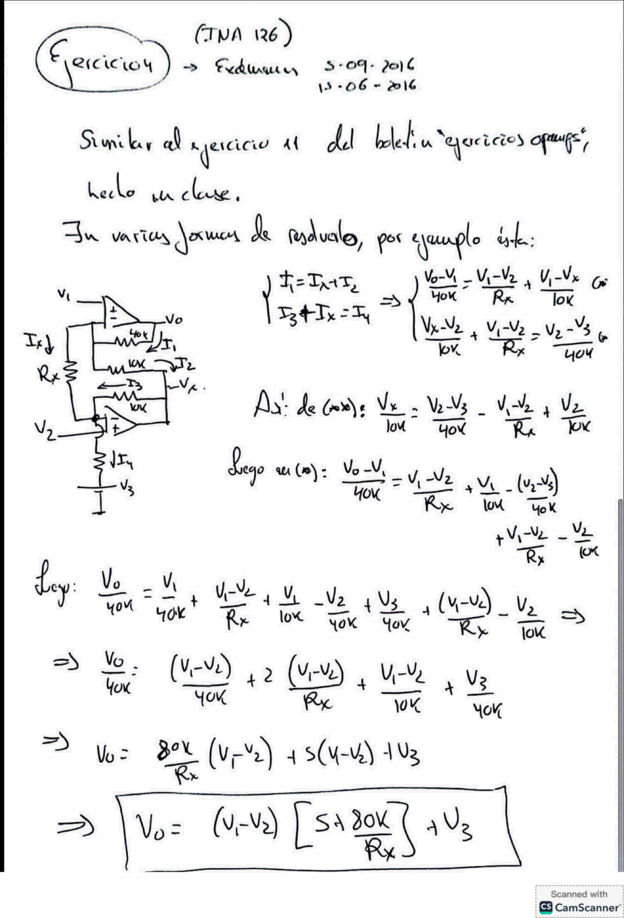 (INA 126)
Ejercicio 4 → Exámenes 5-09-2016
15-06-2016
Similar al ejercicio 11 del boletín "ejercicios opamps",
hecho en clase.
In varias formas de resolverlo, por ejemplo ésta:
{ I₁ = Ix + I₂
I₃ + Ix = I₄ ⇒ { (V₀-V₁)/40K = (V₁-V₂)/Rx + (V₁-Vx)/10K (*)
(Vx-V₂)/10K + (V₁-V₂)/Rx = (V₂-V₃)/40K
V₁
V₀
40K
I₁
Ix↓
Rx
10K
I₂
I₃
Vx
10K
V₂
↓I₄
V₃
Así: de (**): Vx/10K = (V₂-V₃)/40K - (V₁-V₂)/Rx + V₂/10K
Luego en (*): (V₀-V₁)/40K = (V₁-V₂)/Rx + V₁/10K - (V₂-V₃)/40K
+ (V₁-V₂)/Rx - V₂/10K
Luego: V₀/40K = V₁/40K + (V₁-V₂)/Rx + V₁/10K - V₂/40K + V₃/40K + (V₁-V₂)/Rx - V₂/10K ⇒
⇒ V₀/40K = (V₁-V₂)/40K + 2 (V₁-V₂)/Rx + (V₁-V₂)/10K + V₃/40K
⇒ V₀ = 80K/Rx (V₁-V₂) + 5(V₁-V₂) + V₃
⇒ V₀ = (V₁-V₂) [5 + 80K/Rx] + V₃
Scanned with
CS CamScanner